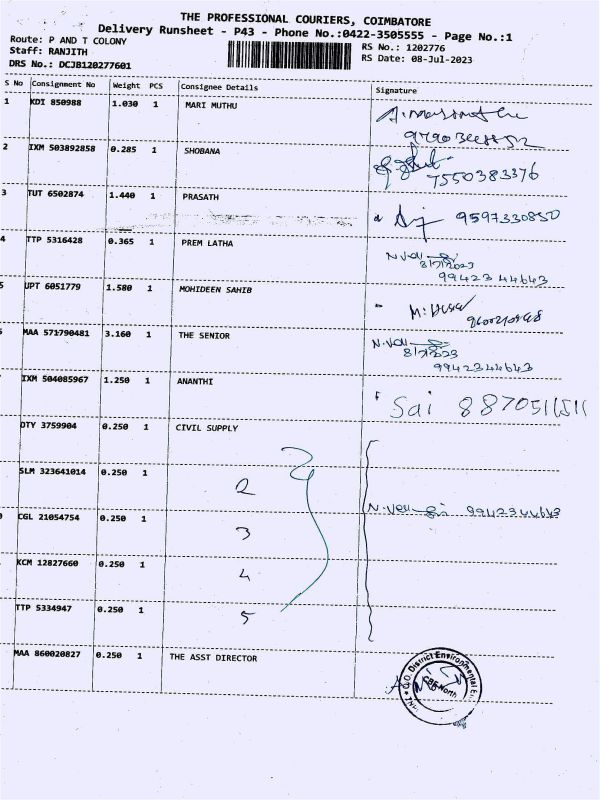 THE PROFESSIONAL COURIERS, COIMBATORE
Delivery Runsheet - P43 - Phone No.:0422-3505555 - Page No.:1
Route: P AND T COLONY
Staff: RANJITH
DRS No.: DCJB120277601
RS No.: 1202776
RS Date: 08-Jul-2023
S No Consignment No Weight PCS Consignee Details Signature
1 KDI 850988 1.030 1 MARI MUTHU
2 IXM 503892858 0.285 1 SHOBANA
7550383376
3 TUT 6502874 1.440 1 PRASATH 9597330850
4 TTP 5316428 0.365 1 PREM LATHA
8/7/2023
99423 44643
5 UPT 6051779 1.580 1 MOHIDEEN SAHIB
MAA 571790481 3.160 1 THE SENIOR
8/7/2023
9942344643
IXM 504085967 1.250 1 ANANTHI Sai
DTY 3759904 0.250 1 CIVIL SUPPLY
SLM 323641014 0.250 1 2
9942344643
CGL 21054754 0.250 1 3
KCM 12827660 0.250 1 4
TTP 5334947 0.250 1 5
MAA 860020827 0.250 1 THE ASST DIRECTOR
O/O. District Environmental
CBE-North